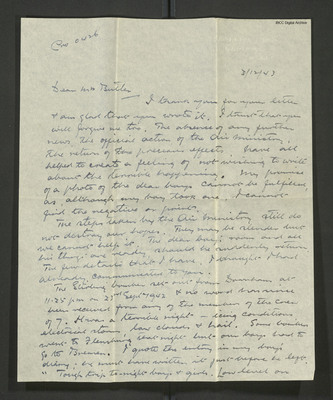 IBCC Digital Archive
8/12/43
Dear Mrs
I thank you for your letter
& am glad that you wrote it. I trust that you
will forgive me too. The absence of any further
news, the official action of the Air Ministry,
the return of the personal effects have all
helped to create a feeling of not wishing to write
about the terrible happening. My promise
of a photo of the dear boys cannot be fulfilled
as, although my boy took one, I cannot
find the negative or print.
The steps taken by the Air Ministry still do
not destroy our hopes. They may be slender but
we cannot help it. The dear boy's room and all
his things are ready, should he suddenly return.
The few details that I have, I thought I had
already communicated to you.
The Stirling bomber set out from Downham at
11.25 pm on Sept 1942 & no news has since
been received from any of the members of the crew
of 7. It was a terrible night - icing conditions
electrical storm, low clouds & hail. Some bombers
went to Flensburg that night but our boys had to
go to Bremen. I quote the entry in my boy's
diary; he must have written it just before he left.
"Tough trip to-night boys & girls. Low level on